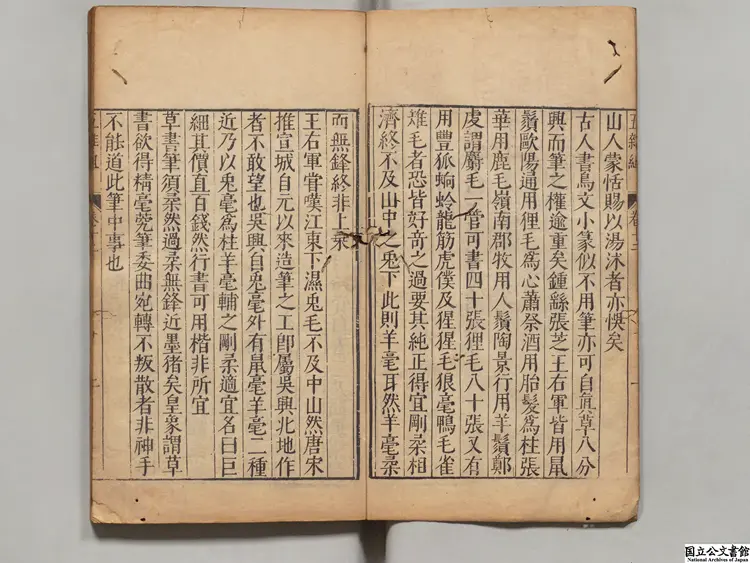 山人蒙恬賜以湯沐者亦悞矣
古人書鳥文小篆似不用筆亦可自真草八分
興而筆之權逾重矣鍾繇張芝王右軍皆用鼠
鬚歐陽通用狸毛爲心蕭祭酒用胎髮爲柱張
華用鹿毛嶺南郡牧用人鬚陶景行用羊鬚鄭
虔謂麝毛一管可書四十張狸毛八十張又有
用豐狐蚼蛉龍筋虎僕及猩猩毛狼毫鴨毛雀
雉毛者恐皆好奇之過要其純正得宜剛柔相
濟終不及山中之兎下此則羊毫耳然羊毫柔
而無鋒終非上乘
王右軍嘗嘆江東下濕兎毛不及中山然唐宋
推宣城自元以來造筆之工卽屬吳興北地作
者不敢望也吳興自兎毫外有鼠毫羊毫二種
近乃以兎毫爲柱羊毫輔之剛柔適宜名曰巨
細其價直百錢然行書可用楷非所宜
草書筆須柔然過柔無鋒近墨猪矣皇象謂草
書欲得精毫㲨筆委曲宛轉不叛散者非神手
不能道此筆中事也
国立公文書館
National Archives of Japan